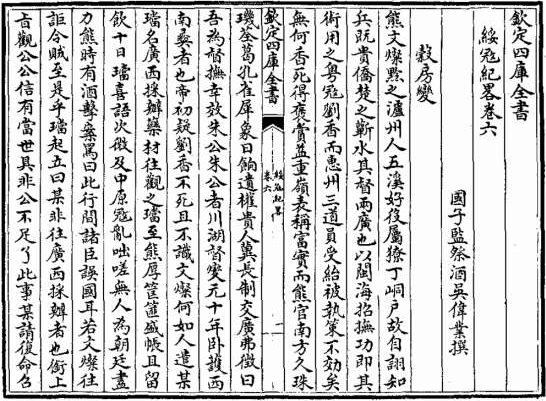 欽定四庫全書
綏冦紀畧卷六
國子監祭酒吳偉業撰
榖房變
熊文燦黔之瀘州人五溪好役屬獠丁峒戶故自詡知
兵既貴僑楚之蘄水其督兩廣也以閩海招撫功即其
術用之粤冦劉香而惠州三道員受紿被執策不効矣
無何香死得襃賞益重嶺表稱富實而熊官南方久珠
欽定四庫全書
綏冦紀畧
卷六
一
璣荃葛孔雀犀象日餉遺權貴人冀長制交廣弗徵曰
吾為督撫幸效朱公朱公者川湖督燮元十年卧護西
南彛者也帝初疑劉香不死且不識文燦何如人遣某
璫名廣西採辦藥材往觀之璫至熊厚筐篚盛帳且留
飲十日璫喜語次微及中原冦亂咄嗟無人為朝廷盡
力熊時有酒擊案罵曰此行間諸臣誤國耳若文燦往
詎令賊至是乎璫起立曰某非往廣西採辦者也銜上
㫖觀公公信有當世具非公不足了此事某請復命召